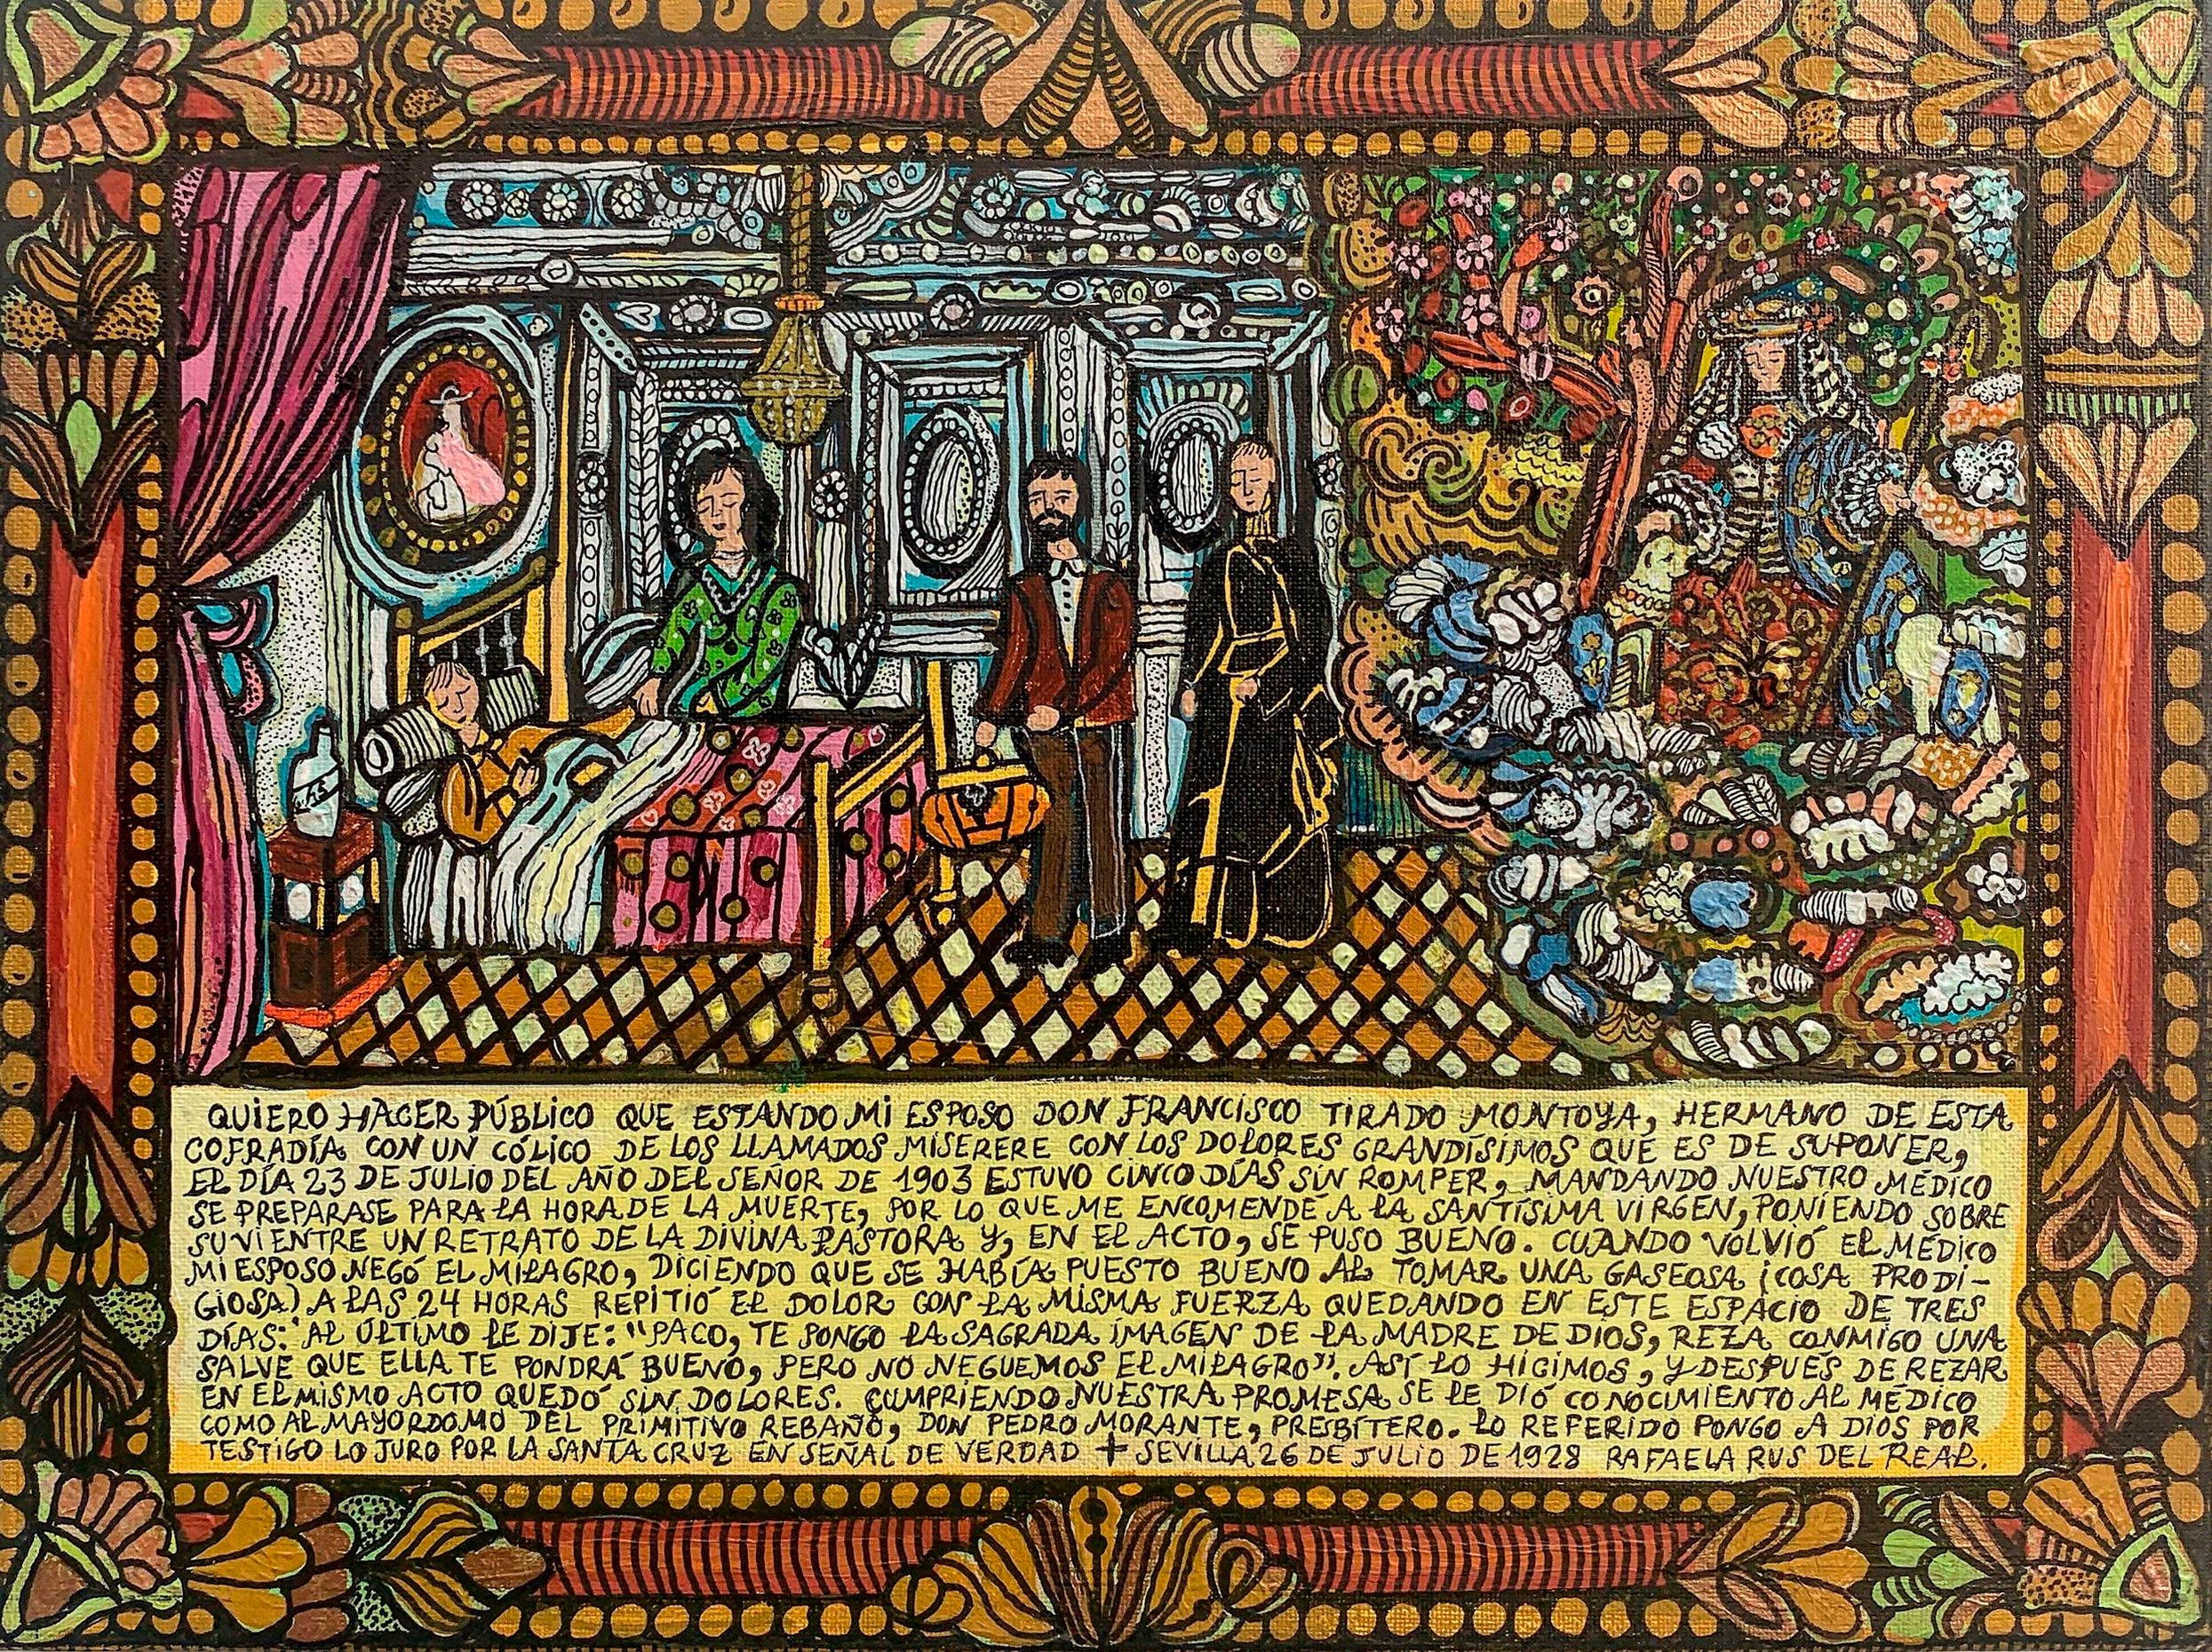 GAS
QUIERO HACER PÚBLICO QUE ESTANDO MI ESPOSO DON FRANCISCO TIRADO MONTOYA, HERMANO DE ESTA
COFRADÍA CON UN CÓLICO DE LOS LLAMADOS MISERERE CON LOS DOLORES GRANDÍSIMOS QUE ES DE SUPONER,
EL DÍA 23 DE JULIO DEL AÑO DEL SEÑOR DE 1903 ESTUVO CINCO DÍAS SIN ROMPER, MANDANDO NUESTRO MÉDICO
SE PREPARASE PARA LA HORA DE LA MUERTE, POR LO QUE ME ENCOMENDÉ A LA SANTÍSIMA VIRGEN, PONIENDO SOBRE
SU VIENTRE UN RETRATO DE LA DIVINA PASTORA Y, EN EL ACTO, SE PUSO BUENO. CUANDO VOLVIÓ EL MÉDICO
MI ESPOSO NEGÓ EL MILAGRO, DICIENDO QUE SE HABÍA PUESTO BUENO AL TOMAR UNA GASEOSA ¡COSA PRODI-
GIOSA) A LAS 24 HORAS REPITIÓ EL DOLOR CON LA MISMA FUERZA QUEDANDO EN ESTE ESPACIO DE TRES
DÍAS: AL ÚLTIMO LE DIJE: "PACO, TE PONGO LA SAGRADA IMAGEN DE LA MADRE DE DIOS, REZA CONMIGO UNA
SALVE QUE ELLA TE PONDRÁ BUENO, PERO NO NEGUEMOS EL MILAGRO". ASÍ LO HICIMOS, Y DESPUÉS DE REZAR
EN EL MISMO ACTO QUEDÓ SIN DOLORES. CUMPRIENDO NUESTRA PROMESA SE LE DIÓ CONOCIMIENTO AL MÉDICO
COMO AL MAYORDOMO DEL PRIMITIVO REBAÑO, DON PEDRO MORANTE, PRESBÍTERO. LO REFERIDO PONGO A DIOS POR
TESTIGO LO JURO POR LA SANTA CRUZ EN SEÑAL DE VERDAD + SEVILLA 26 DE JULIO DE 1928 RAFAELA RUS DEL REAL.